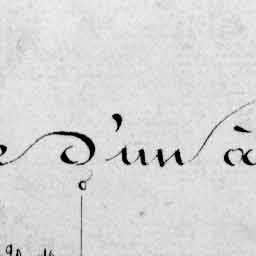 e d'un à